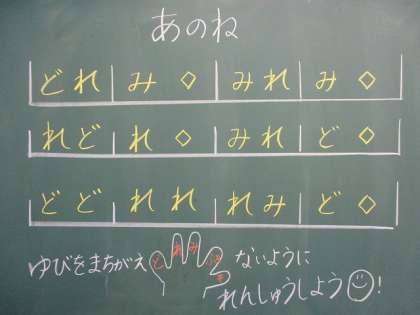 あのね
どれ み◇ みれ み◇
れど れ◇ みれ ど◇
どど れれ れみ ど◇
ゆびをまちがえ ないように
どれみ
れんしゅうしよう!